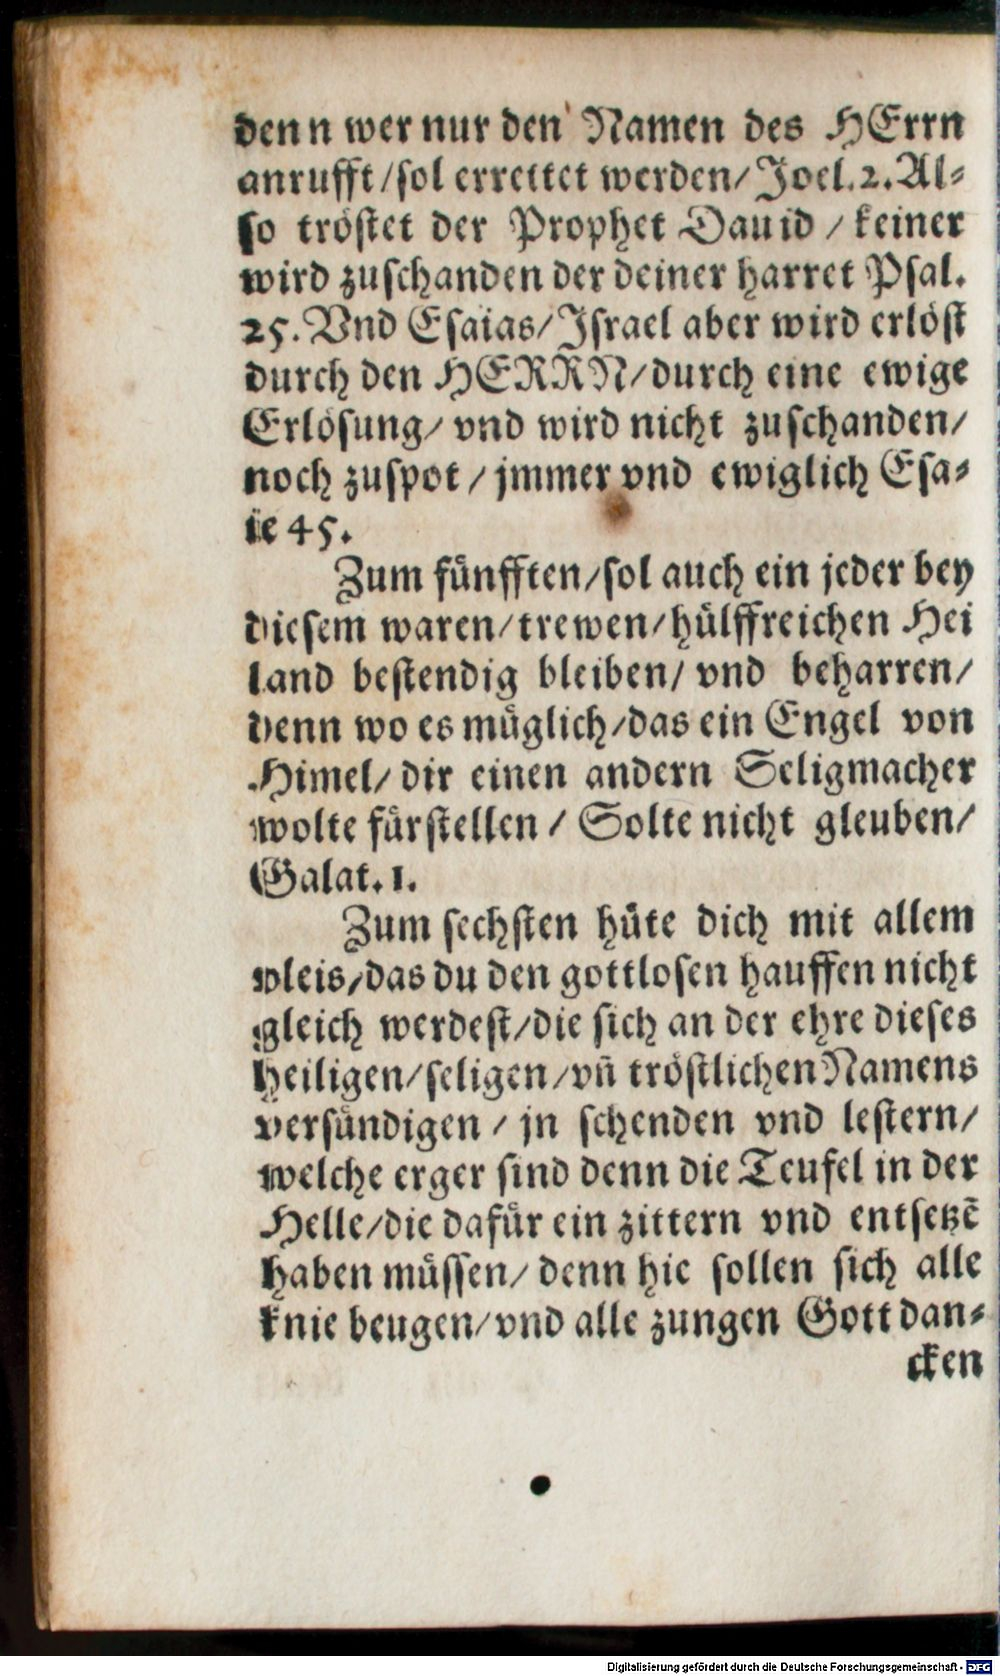 denn wer nur den Namen des HErrn
anrufft/sol errettet werden/Joel.2.Al⸗
so tröstet der Prophet Dauid / keiner
wird zuschanden der deiner harret Psal.
25. Vnd Esaias/Israel aber wird erlöst
durch den HERRN/durch eine ewige
Erlösung/ vnd wird nicht zuschanden/
noch zuspot / jmmer vnd ewiglich Esa⸗
ie 45.
Zum fünfften/sol auch ein jeder bey
diesem waren/trewen/hülffreichen Hei
land bestendig bleiben/ vnd beharren/
denn wo es müglich/das ein Engel von
Himel/ dir einen andern Seligmacher
wolte fürstellen / Solte nicht gleuben/
Galat. 1.
Zum sechsten hüte dich mit allem
vleis/das du den gottlosen hauffen nicht
gleich werdest/die sich an der ehre dieses
heiligen/seligen/vñ tröstlichen Namens
versündigen / jn schenden vnd lestern/
welche erger sind denn die Teufel in der
Helle/die dafür ein zittern vnd entsetzē
haben müssen/ denn hie sollen sich alle
knie beugen/vnd alle zungen Gott dan⸗
cken
Digitalisierung gefördert durch die Deutsche Forschungsgemeinschaft - DFG